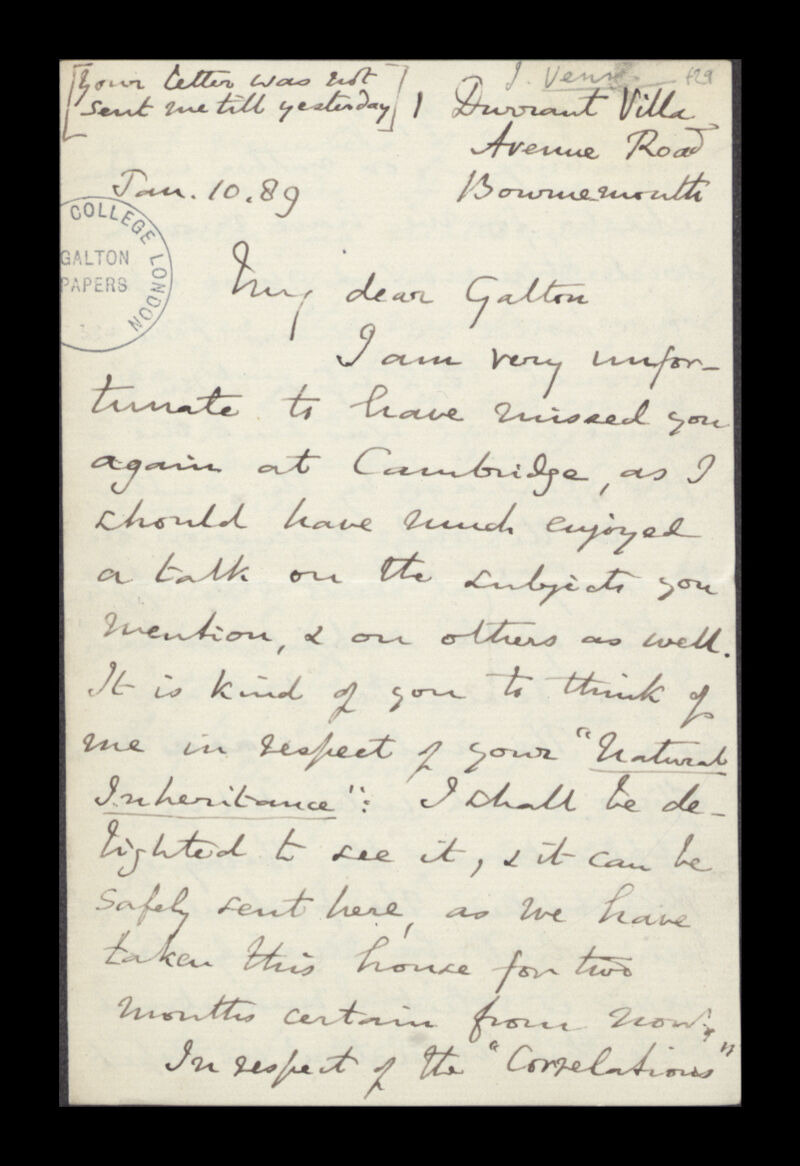 [Your letter was not
sent me till yesterday]
J. Venn
f29
1 Durrant Villa
Avenue Road
Bournemouth
Jan. 10. 89
COLLEGE LONDON
GALTON
PAPERS
My dear Galton
I am very unfor-
tunate to have missed you
again at Cambridge, as I
should have much enjoyed
a talk on the subjects you
mention, & on others as well.
It is kind of you to think of
me in respect of your "Natural
Inheritance": I shall be de-
lighted to see it, & it can be
safely sent here, as we have
taken this house for two
months certain from now.
In respect of the "Correlations"